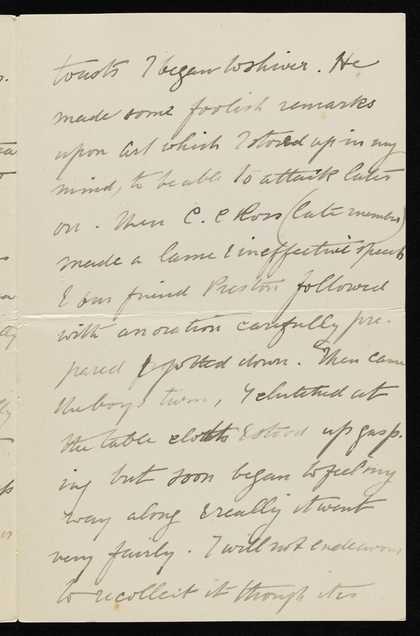 toasts I began to shiver. He
made some foolish remarks
upon Art which I stored up in my
mind, to be able to attack later
on. Then C. C Ross (late member)
made a lame & ineffective speech
& our friend Preston followed
with an oration carefully pre-
pared & jotted down. Then came
the boy's turn, I clutched at
the table cloth & stood up gasp-
ing but soon began to feel my
way along & really it went
very fairly. I will not endeavour
to recollect it though it is